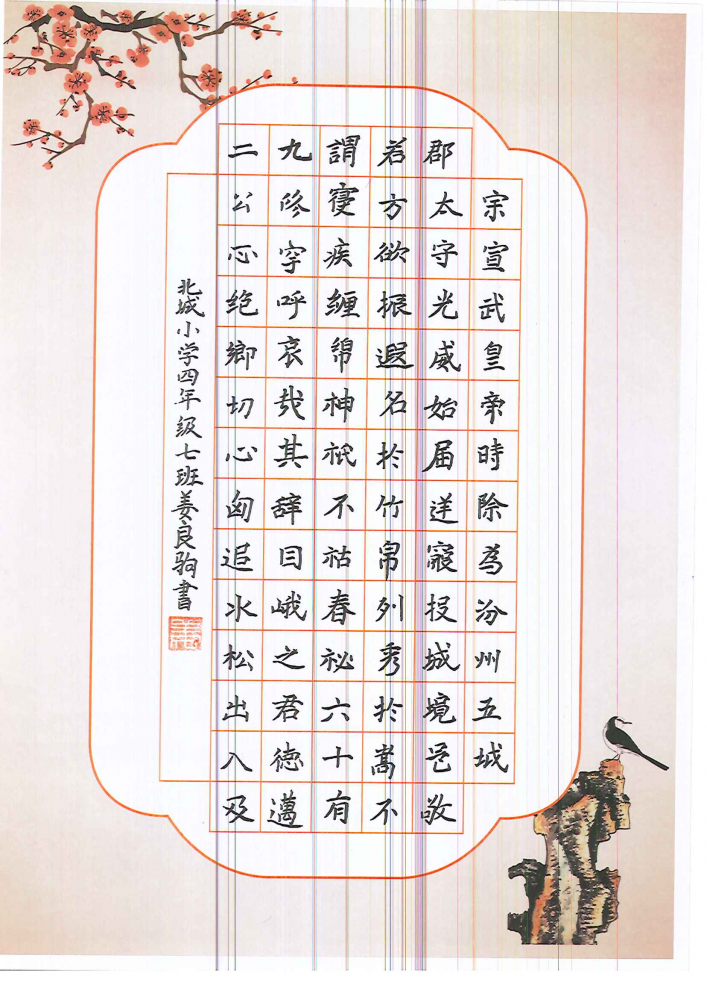 宗宣武皇帝時除為汾州五城
郡太守光威始届送寢投城境邑敬
若方欲振遐名於竹帛列秀於嵩不
謂寑疾纏綿神祇不祜春秘六十有
九終穸呼哀哉其辞曰峨之君徳邁
二公心绝鄉切心匈追氷松出入及
北城小学四年级七班姜良驹書